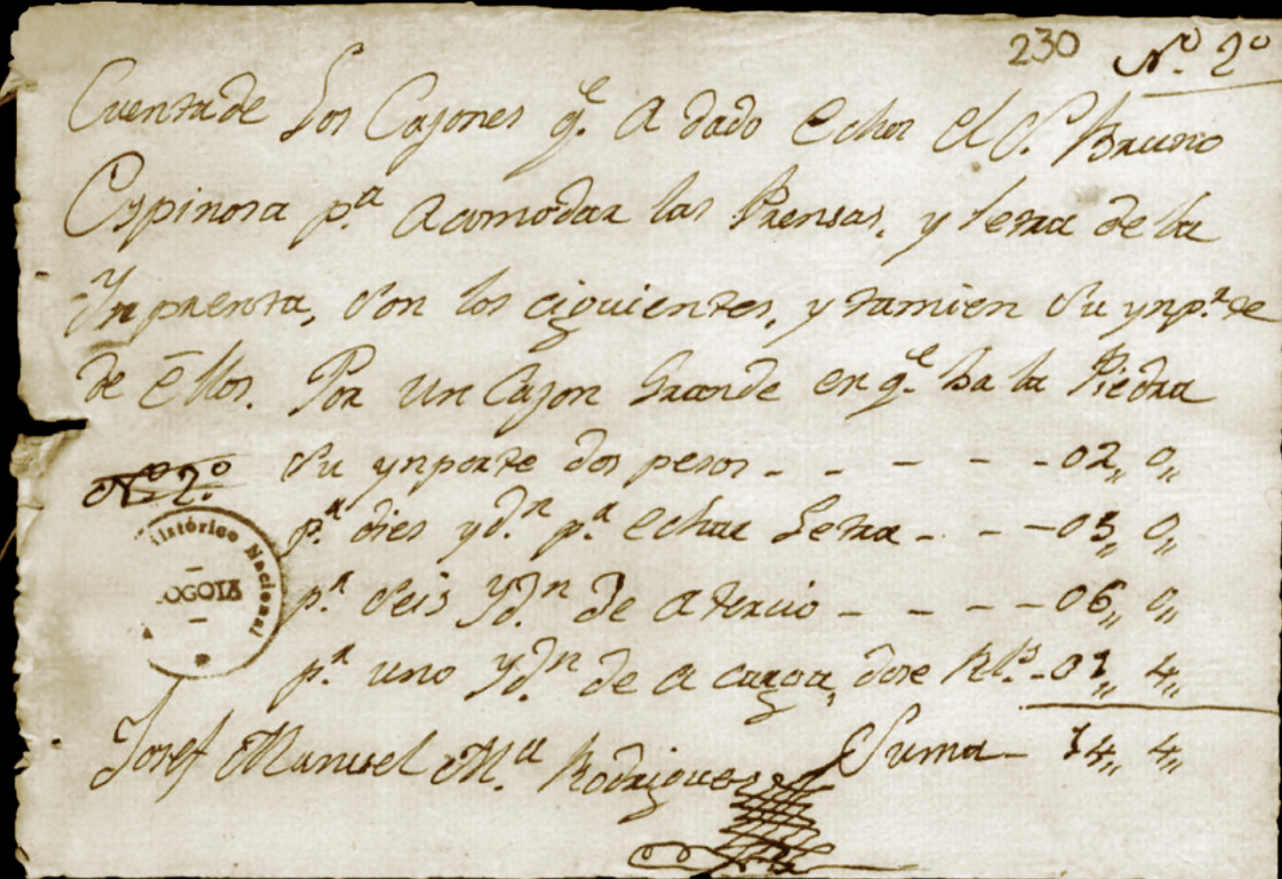 230 No. 2o
Cuenta de Los Cajones qe. a dado echos el S. Bruno
Espinosa pa. acomodar las Prensas, y letra de la
Ynprenta, son los ciguientes, y tamien su ynpa.te
de Ellos. Por un Cajon Grande en qe. ba la Piedra
No. 2o. su ynporte dos pesos - - - - - - 02,, 0,,
pr. dies ydn. pa. echar Letra - - - 05,, 0,,
pr. seis Ydn. de a tercio - - - - 06,, 0,,
pr. uno Ydn. de a carga, dose Rls. - 01,, 4,,
Josef Manuel Ma. Rodrigues Suma - 14,, 4,,
Histórico Nacional
BOGOTA